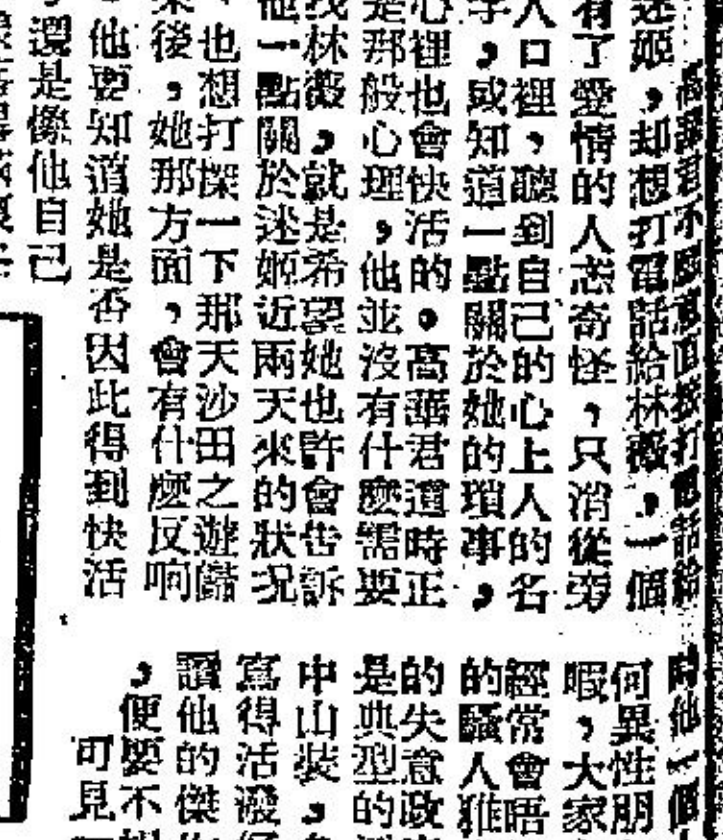 高華君不願意直接打電話給
迷姬，却想打電話給林薇。一個
有了愛情的人忒奇怪，只消從旁
人口裡，聽到自己的心上人的名
字，或知道一點關於她的瑣事，
心裡也會快活的。高華君這時正
是那般心理，他並沒有什麽需要
找林薇，就是希望她也許會告訴
他一點關於迷姬近兩天來的狀况
，也想打探一下那天沙田之遊歸
來後，她那方面，會有什麽反响
他要知道她是否因此得到快活
還是像他自己
時他一個
何異性朋
暇，大家
經常會晤
的騷人雅
的失意政
是典型的
中山裝，
寫得活潑
讀他的傑
，便要不
可見